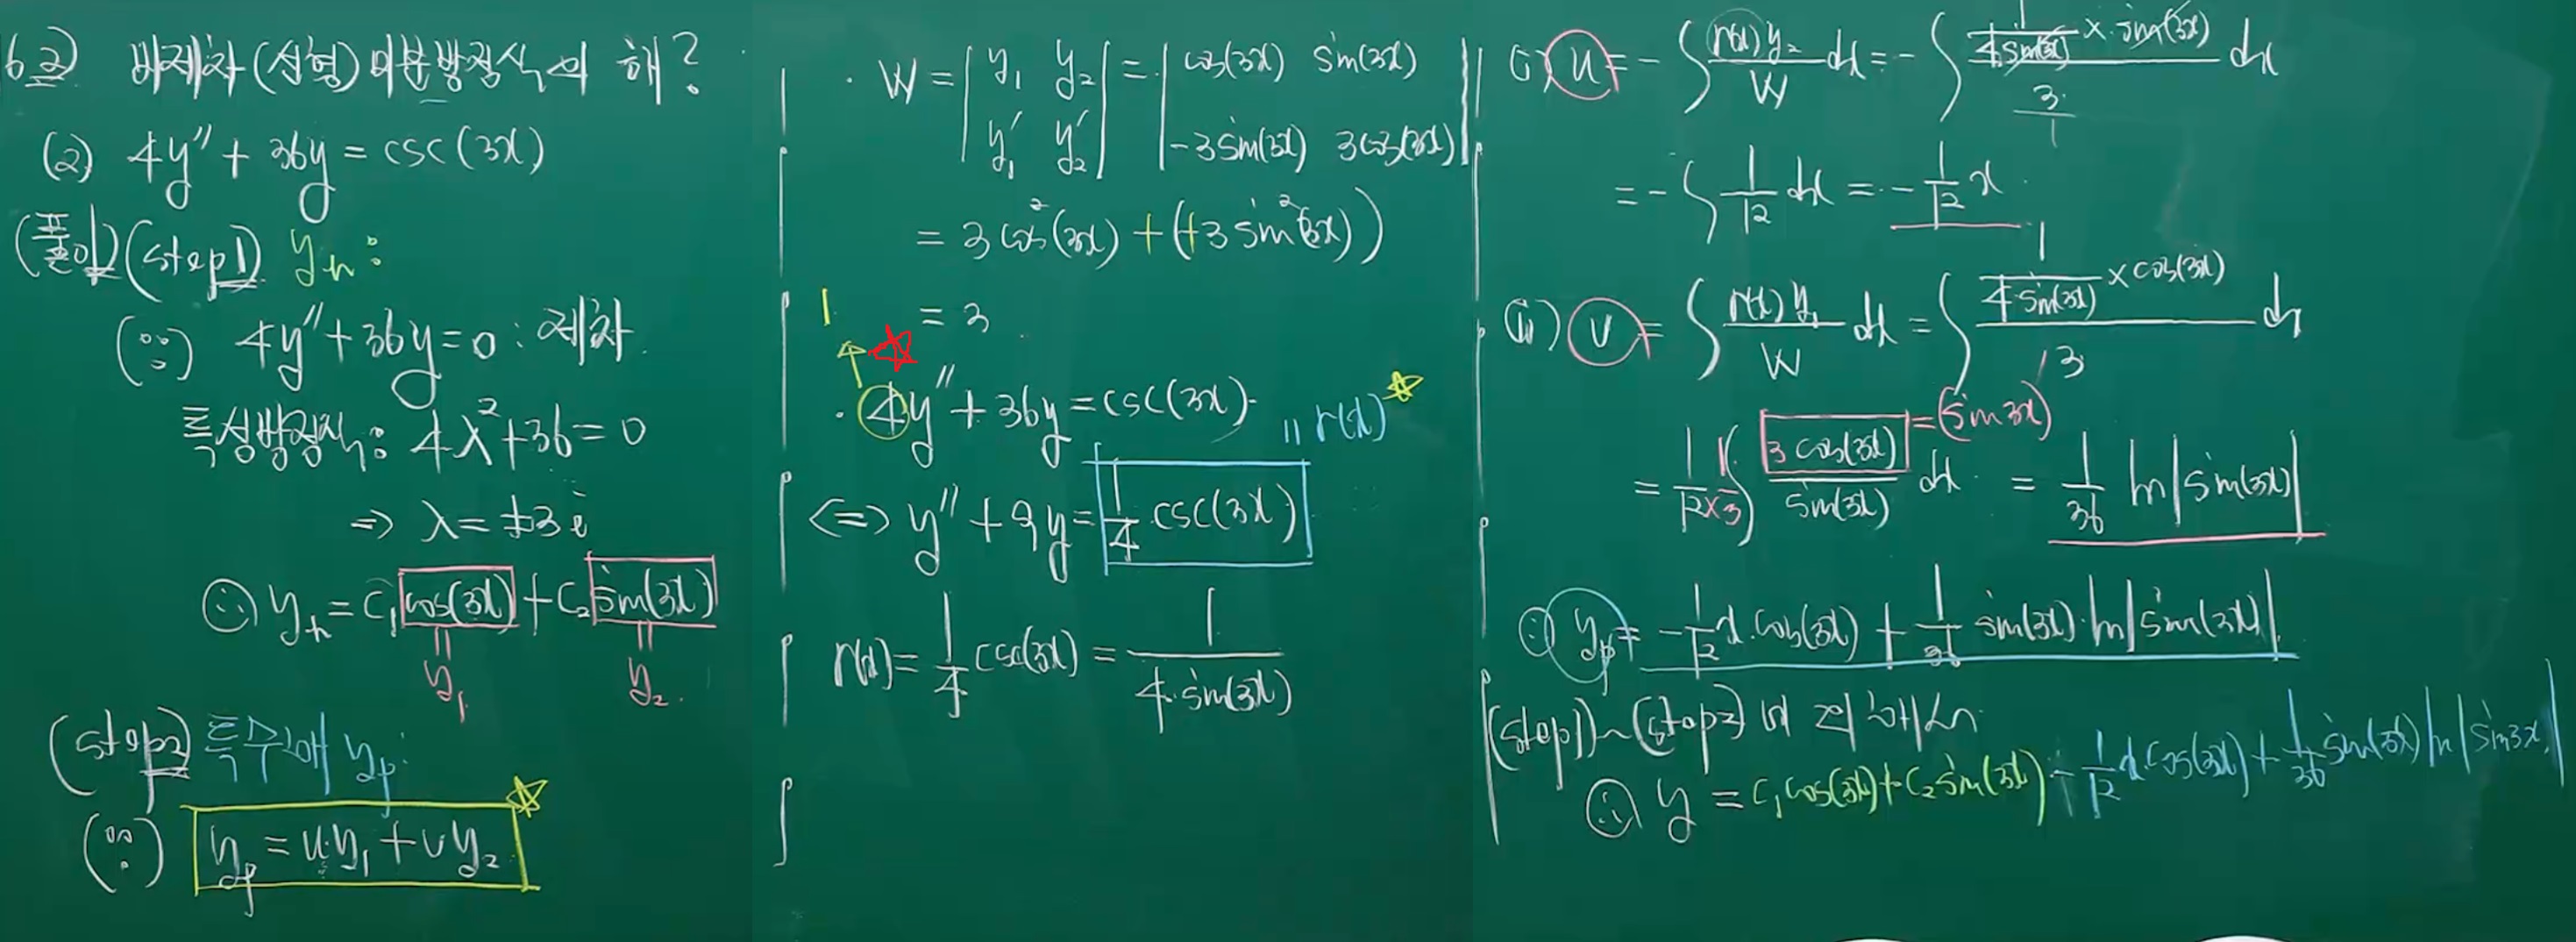 6.2) 비제차(선형) 미분방정식의 해?
(2) 4y″ + 36y = csc(3x)
(풀이)(step1) yₕ :
(∵) 4y″+36y=0 : 제차.
특성방정식: 4λ²+36=0
⇒ λ=±3i
∴ yₕ = C₁cos(3x)+C₂sin(3x)
‖ ‖
y₁ y₂.
(step2) 특수해 yₚ:
(∵) yₚ = u·y₁ + vy₂ ☆
· W = |y₁ y₂; y₁′ y₂′| = |cos(3x) sin(3x); -3sin(3x) 3cos(3x)|
= 3cos²(3x) + (+3sin²(3x))
= 3
1
↑ ☆
· 4y″ + 36y = csc(3x)
‖ r(x) ☆
⇔ y″ + 9y = 1/4 csc(3x)
r(x) = 1/4 csc(3x) = 1/(4·sin(3x))
i) u = -∫ r(x)y₂/W dx = -∫ (1/(4sin(3x)) × sin(3x))/(3/1) dx
= -∫ 1/12 dx = -1/12 x
ii) v = ∫ r(x)y₁/W dx = ∫ (1/(4sin(3x)) × cos(3x))/3 dx
= 1/(12×3) ∫ 3cos(3x)/sin(3x) dx = 1/36 ln|sin(3x)|
=(sin3x)′
∴ yₚ = -1/12 x·cos(3x) + 1/36 sin(3x)·ln|sin(3x)|
(step1)~(step2)에 의해서
∴ y = C₁cos(3x)+C₂sin(3x) - 1/12 x·cos(3x) + 1/36 sin(3x) ln|sin3x|